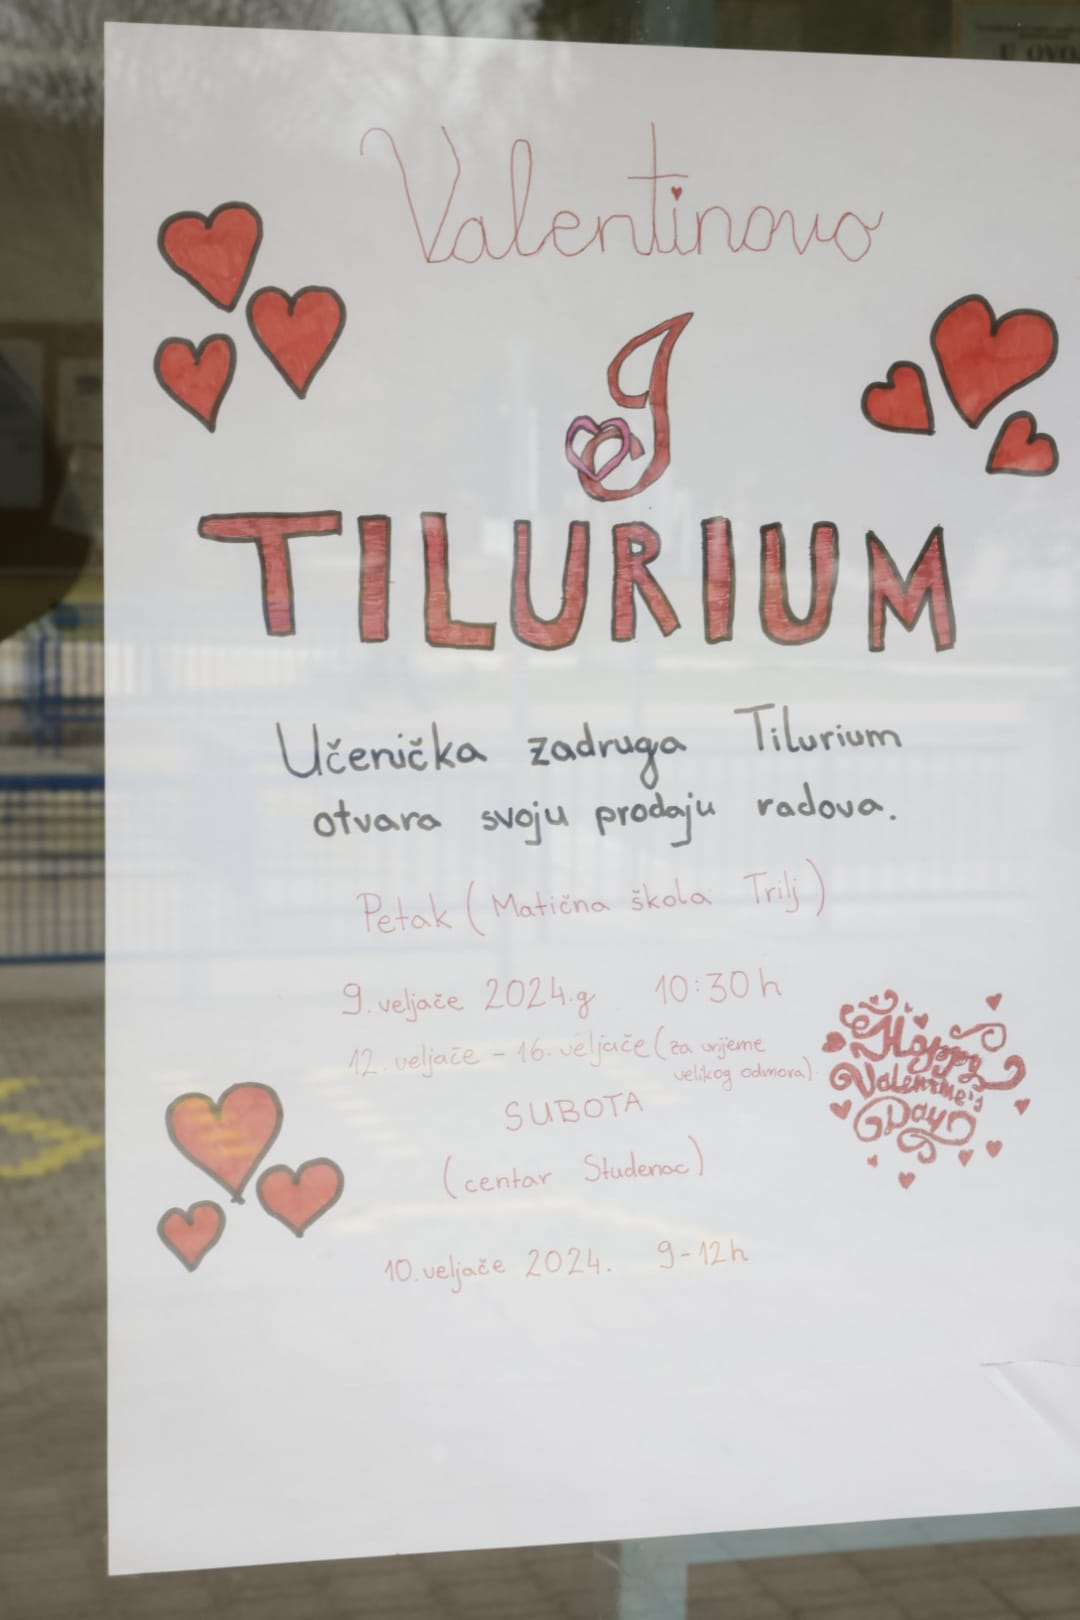 U OVO
Valentinovo
I
TILURIUM
Učenička zadruga Tilurium
otvara svoju prodaju radova.
Petak (Matična škola Trilj)
9. veljače 2024.g 10:30h
12. veljače - 16. veljače (za vrijeme
velikog odmora)
Happy
Valentine's
Day
SUBOTA
(centar Studenac)
10. veljače 2024. 9-12h